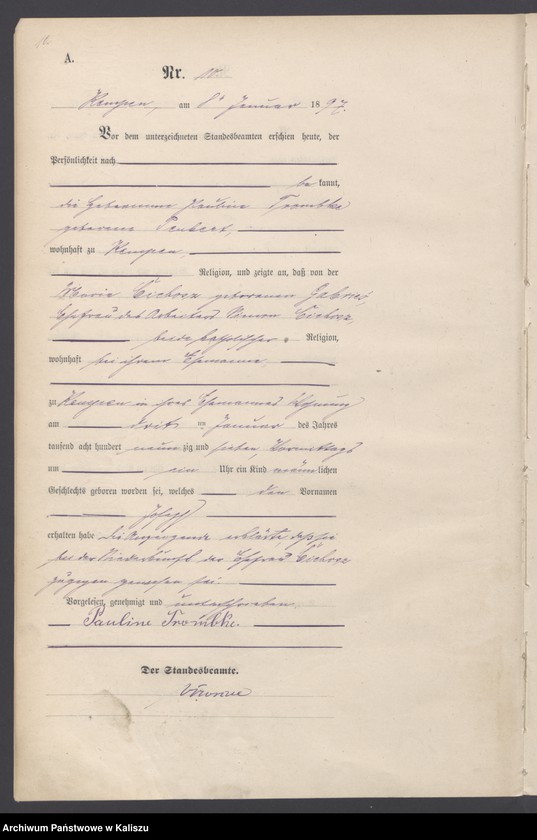 A.
Nr. 10
Kempen, am 8ten Januar 1897.
Vor dem unterzeichneten Standesbeamten erschien heute, der
Persönlichkeit nach
be kannt,
die Hebeamme Pauline Trombke
geborene
wohnhaft zu Kempen,
Religion, und zeigte an, daß von der
Marie geborenen
Ehefrau des Arbeiters
beide katholischer Religion,
wohnhaft bei ihrem Ehemanne,
zu Kempen in ihres Ehemannes Wohnung
am dritten Januar des Jahres
tausend acht hundert neunzig und sieben, Vormittags
um ein Uhr ein Kind männlichen
Geschlechts geboren worden sei, welches den Vornamen
Joseph
erhalten habe. Die Anzeigende erklärte, daß sie
bei der Niederkunft der Ehefrau
zugegen gewesen sei.
Vorgelesen, genehmigt und unterschrieben.
Pauline Trombke.
Der Standesbeamte.
Archiwum Państwowe w Kaliszu